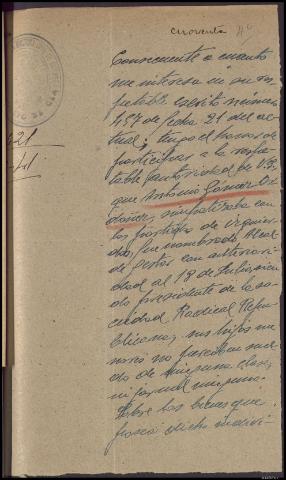 cuarenta 40
Consecuente a cuanto
me interesa en su res-
petable escrito número
457 de fecha 21 del ac-
tual, tengo el honor de
participar a la respe-
table autoridad de V.S.
que Antonio Gómez Or-
dóñez, simpatizaba con
los partidos de izquier-
das, fue nombrado Alcal-
de gestor con anteriori-
dad al 18 de Julio, sien-
do presidente de la so-
ciedad Radical Repu-
blicana, sus hijos me-
nores no
de ninguna clase,
ni jornal ninguno.
Sobre los bienes que
posea dicho indivi-
21